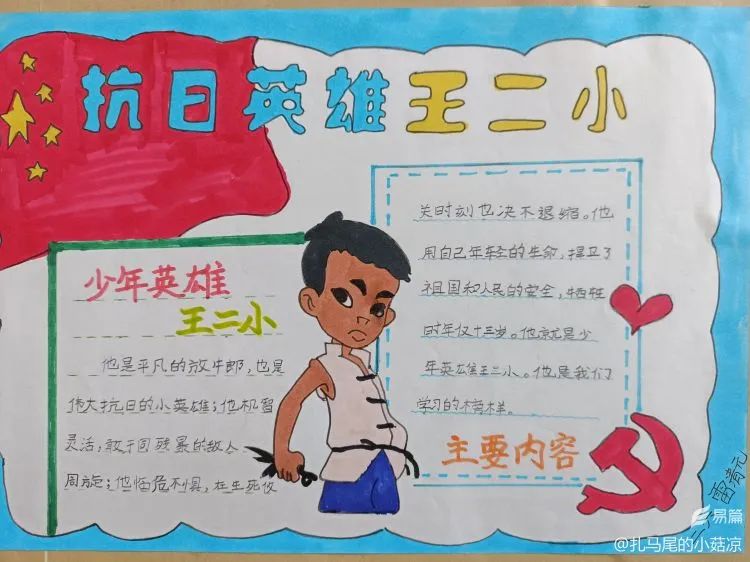 抗日英雄王二小
少年英雄
王二小
他是平凡的放牛郎,也是
伟大抗日的小英雄;他机智
灵活,敢于同残暴的敌人
周旋;他临危不惧,在生死攸
关时刻也决不退缩。他
用自己年轻的生命,捍卫了
祖国和人民的安全,牺牲
时年仅十三岁。他就是少
年英雄王二小。他是我们
学习的榜样。
主要内容
易篇
@扎马尾的小菇凉